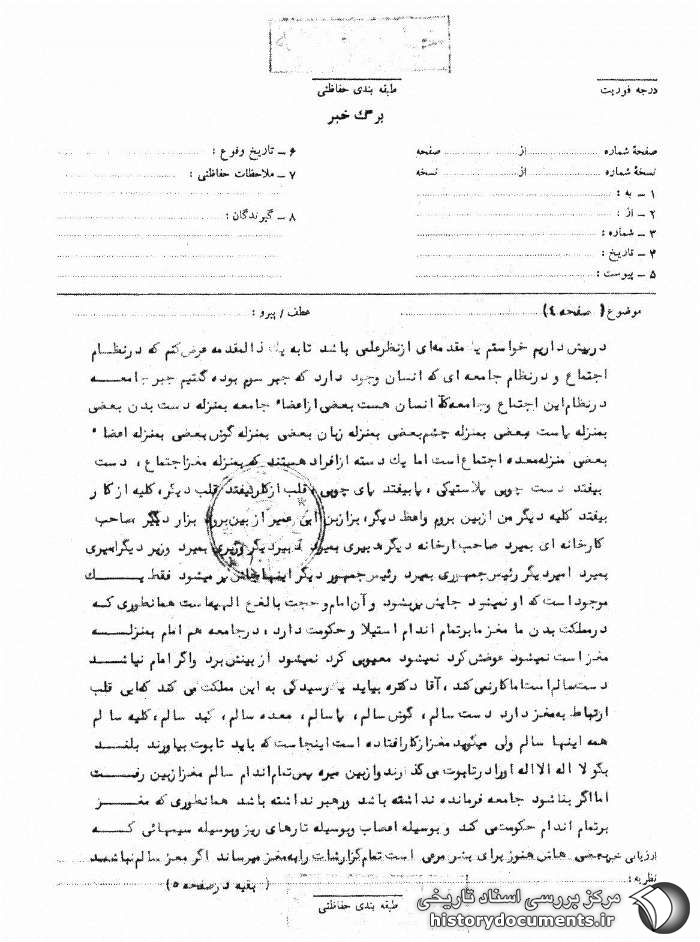 درجه فوریت
طبقه بندی حفاظتی
برگ خبر
صفحهٔ شماره از صفحه
نسخهٔ شماره از نسخه
۱ – به :
۲ – از :
۳ – شماره :
۴ – تاریخ :
۵ – پیوست :
۶ – تاریخ وقوع :
۷ – ملاحظات حفاظتی :
۸ – گیرندگان :
موضوع ( صفحه ۴) عطف / پیرو :
در پیش داریم خواستم یک مقدمه‌ای از نظر علمی باشد تا به یک ذالمقدمه عرض کنم که در نظام
اجتماع و در نظام جامعه ای که انسان وجود دارد که جبر سوم بوده گفتیم جبر جامعه
در نظام این اجتماع و جامعه که انسان هست بعضی از اعضاء جامعه بمنزله دست بدن بعضی
بمنزله پاست بعضی بمنزله چشم بعضی بمنزله زبان بعضی بمنزله گوش بعضی بمنزله اعضاء
بعضی منزله معده اجتماع است اما یك دسته از افراد هستند که بمنزله مغز اجتماع ، دست
بیفتد دست چوبی پلاستیکی ، پا بیفتد پای چوبی ، قلب از کار بیفتد قلب دیگر، کلیه از کار
بیفتد کلیه دیگر من از بین بروم واعظ دیگر، بزاز بن ابی عمیر از بین برود بزاز دیگر صاحب
کارخانه ای بمیرد صاحب ارخانه دیگر مدبیری بمیرد مدبیر دیگر وزیری بمیرد وزیر دیگر امیری
بمیرد امیر دیگر رئیس جمهوری بمیرد رئیس جمهور دیگر اینها جاش پر میشود فقط یك
موجود است که او نمیشود جایش پر بشود و آن امام و حجت بالغ الهیه است همانطوری که
در مملکت بدن ما مغز ما بر تمام اندام استیلا و حکومت دارد ، در جامعه هم امام بمنزله
مغز است نمیشود عوضش کرد نمیشود معیوبی کرد نمیشود از بینش برد و اگر امام نباشد
دست سالم است اما کار نمی کند ، آقا دکتره بیاید یك رسیدگی به این مملکت می کند که این قلب
ارتباط به مغز دارد دست سالم، گوش سالم، پا سالم، معده سالم، کبد سالم، کلیه سالم
همه اینها سالم ولی میگوید مغز از کار افتاده است اینجاست که باید تابوت بیاورند بلند
بگو لا اله الا اله او را در تابوت می گذارند و از بین میره پس تمام اندام سالم مغز از بین رفت
اما اگر بنا شود جامعه فرمانده نداشته باشد و رهبر نداشته باشد همانطوری که مغز
بر تمام اندام حکومت می کند و بوسیله اعصاب و بوسیله تارهای ریز و بوسیله سیمهائی که
بعضی هاش هنوز برای بشر مرعی است تمام گزارشات را به مغز میرساند اگر مغز سالم نباشد
ارزیابی خبر
نظریه :
( بقیه در صفحه ۵)
طبقه بندی حفاظتی
مرکز بررسی اسناد تاریخی
historydocuments.ir